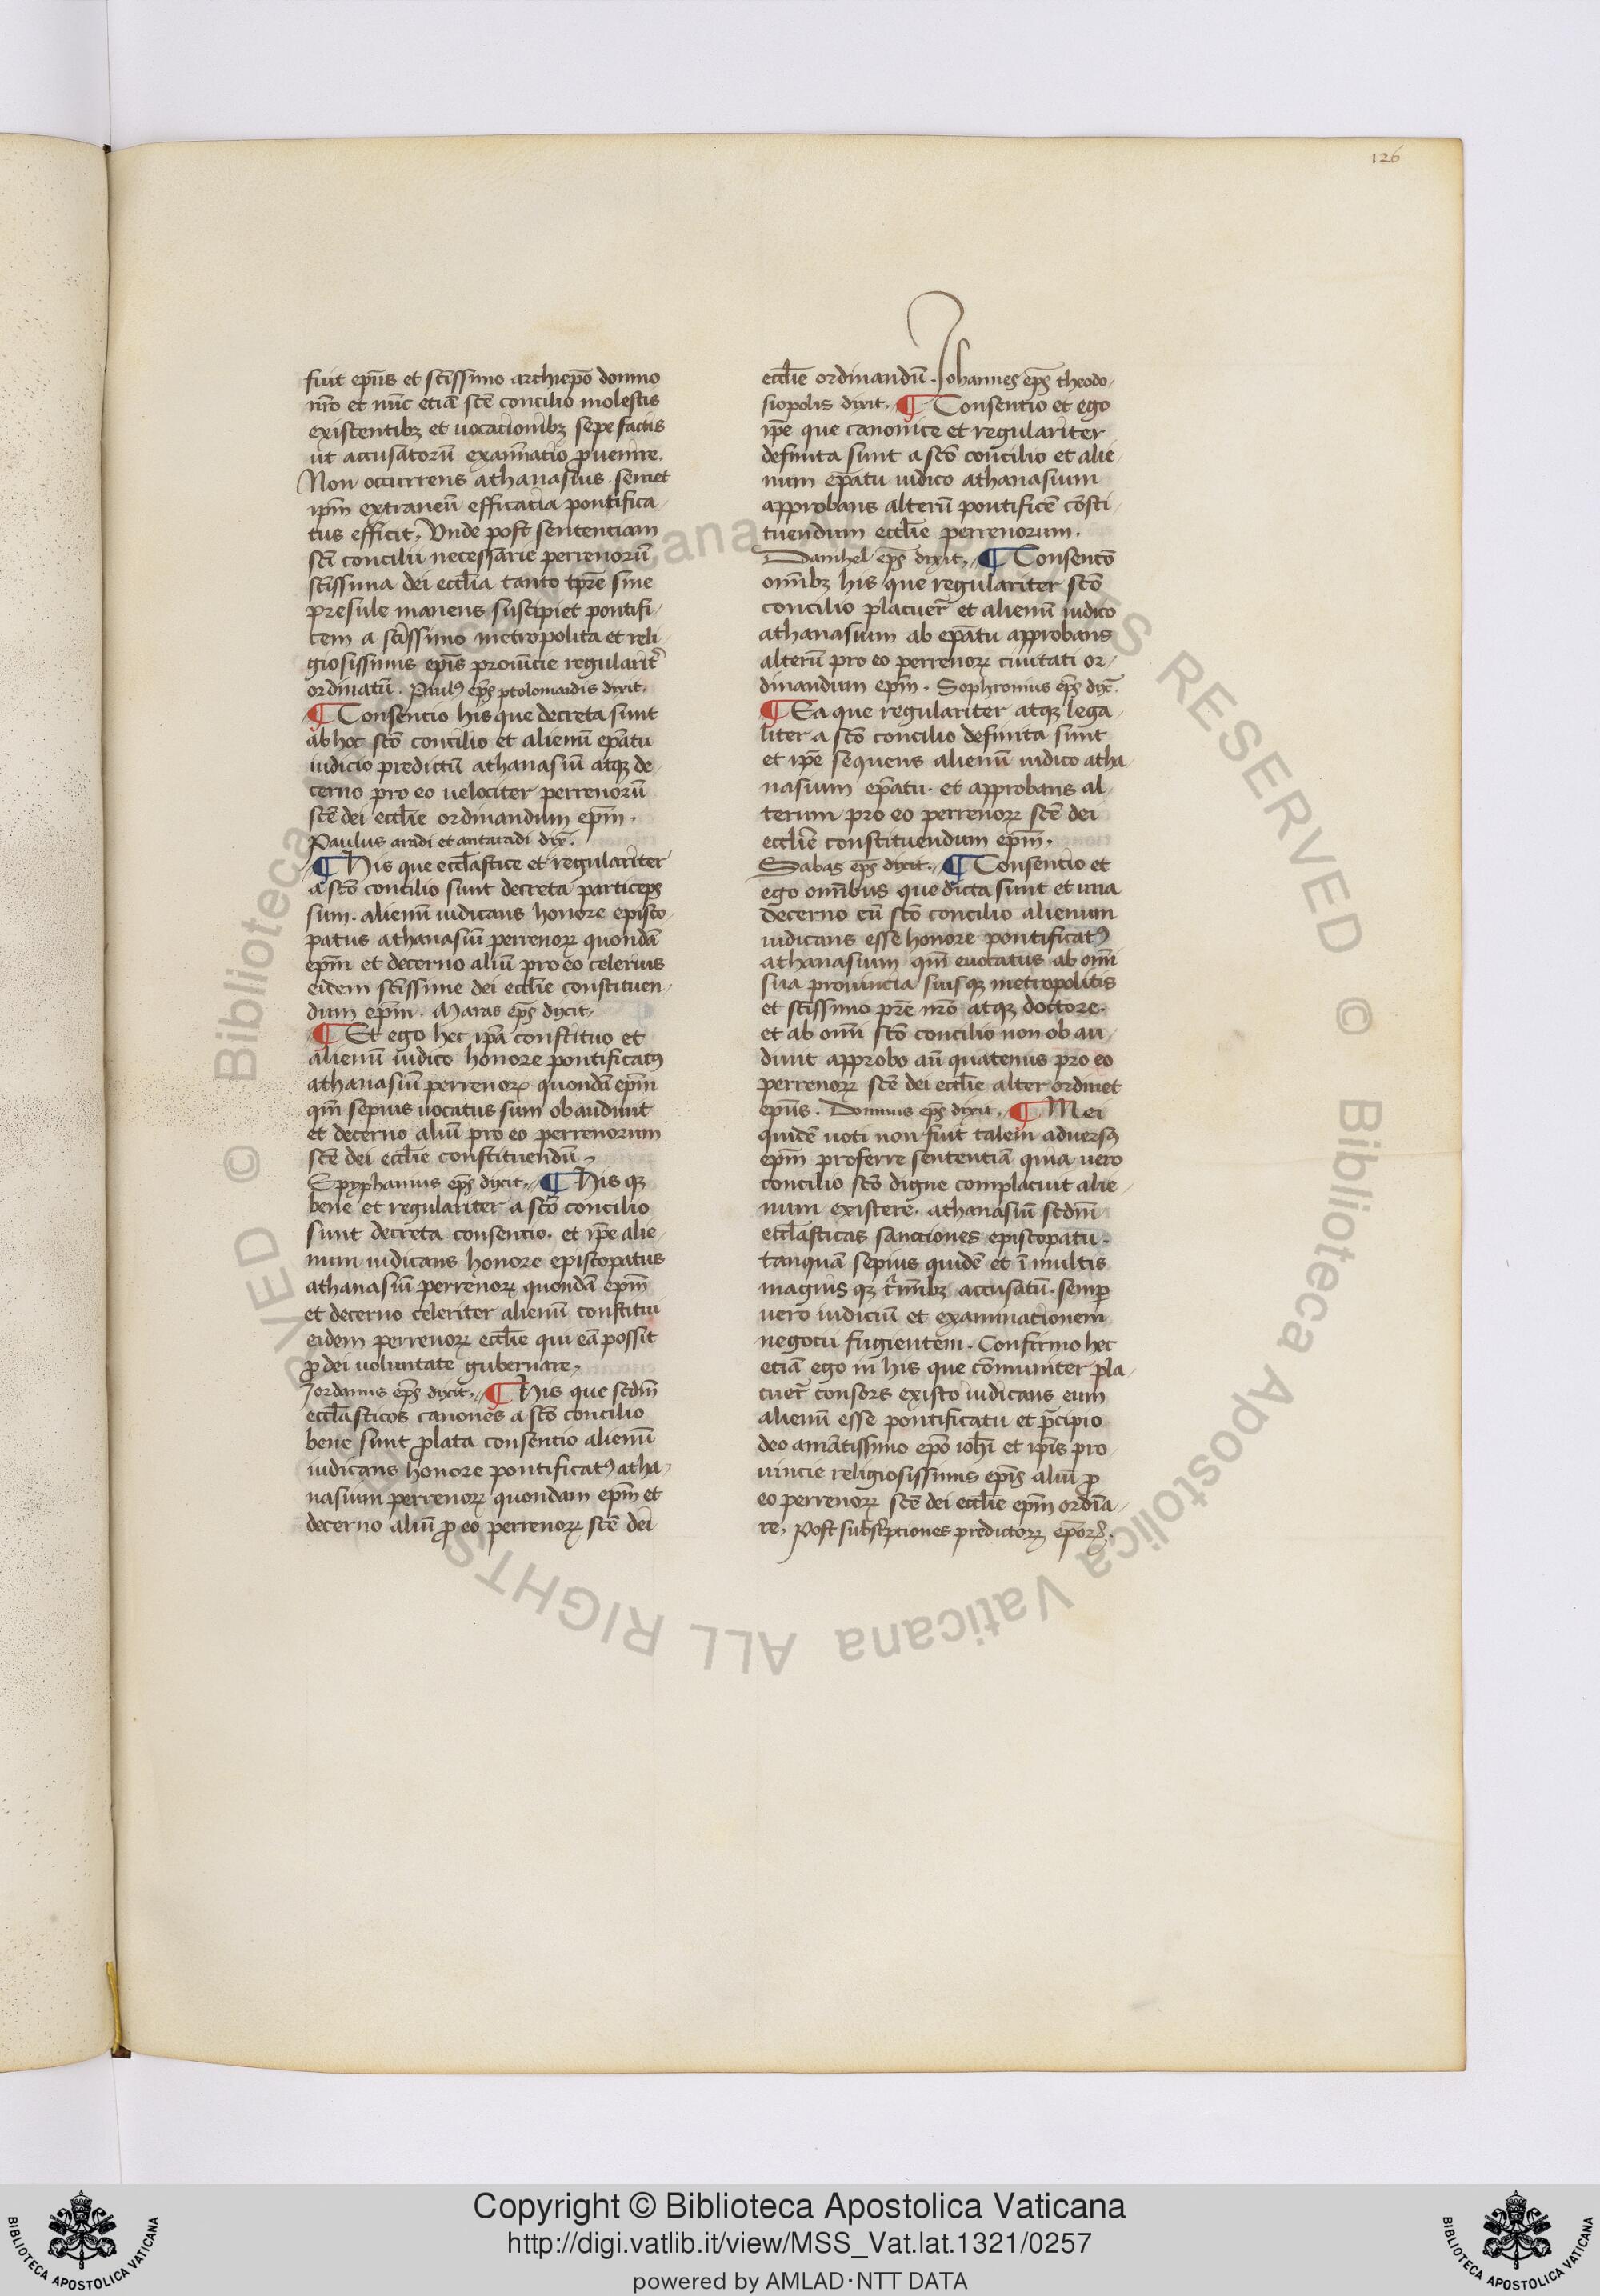 126
fuit ep̄us et sc̄issimo archiepo̅ domno
nr̄o et nūc etiā sc̄e concilio molestis
existentibꝫ et uocationibꝫ sepe factis
ut accusatorū examīatio ꝓuenire.
Non occurrens athanasius semet
ip̄m extraneū efficacia pontifica-
tus efficit, Unde post sentenciam
sc̄i concilii necessarie perrenorū
sc̄issima dei eccl̄ia tanto tp̄re sine
presule manens suscipiet pontifi-
cem a sc̄issimo metropolita et reli-
giosissimis ep̄is prouīcie regularit̄
ordinatū. Paulꝰ ep̄s ptolomaidis dixit.
¶ Consencio his que decreta sunt
ab hoc sc̄o concilio et alienū ep̄atu
iudicio predictū athanasiū atqꝫ de-
cerno pro eo uelociter perrenorū
sc̄e dei eccl̄ie ordinandum ep̄m.
Paulus aradi et antaradi dix̄.
¶ His que eccl̄astice et regulariter
a sc̄o concilio sunt decreta particeps
sum. alienū iudicans honore episco-
patus athanasiū perrenoꝝ quondā
ep̄m et decerno aliū pro eo celerius
eidem sc̄issime dei eccl̄ie constituen-
dum ep̄m. Maras ep̄s dixit,
¶ Et ego hec ip̄a constituo et
alienū iudico honore pontificatꝰ
athanasiū perrenoꝝ quondā ep̄m
qm̄ sepius uocatus sum obaudiuit
et decerno aliū pro eo perrenorum
sc̄e dei eccl̄ie constituendū,
Epyphanius ep̄s dixit, ¶ His qꝫ
bene et regulariter a sc̄o concilio
sunt decreta consencio. et ip̄e alie-
num iudicans honore episcopatus
athanasiū perrenoꝝ quondā ep̄m
et decerno celeriter alienū constitui
eidem perrenoꝝ eccl̄ie qui eā possit
ꝓ dei uoluntate gubernare,
Jordanus ep̄s dixit, ¶ His que scdm̄
eccl̄asticos canones a sc̄o concilio
bene sunt ꝓlata consencio alienū
iudicans honore pontificatꝰ atha-
nasium perrenoꝝ quondam ep̄m et
decerno aliū ꝓ eo perrenoꝝ sc̄e dei
eccl̄ie ordinandū. Johannes ep̄s theodo-
siopolis dixit, ¶ Consentio et ego
ip̄e que canonice et regulariter
definita sunt a sc̄o concilio et alie-
num ep̄atu iudico athanasium
approbans alterū pontificē cōsti-
tuendum eccl̄ie perrenorum.
Danihel ep̄s dixit, ¶ Consentō
omībꝫ his que regulariter sc̄o
concilio placuer̄ et alienū iudico
athanasium ab ep̄atu approbans
alterū pro eo perrenoꝝ ciuitati or-
dinandum ep̄m. Sophronius ep̄s dix̄.
¶ Ea que regulariter atqꝫ lega-
liter a sc̄o concilio definita sunt
et ip̄e sequens alienū iudico atha-
nasium ep̄atu. et approbans al-
terum pro eo perrenoꝝ sc̄e dei
eccl̄ie constituendum ep̄m.
Sabas ep̄s dixit, ¶ Consentio et
ego omībus que dicta sunt et una
decerno cū sc̄o concilio alienum
iudicans esse honore pontificatꝰ
athanasium qm̄ euocatus ab omī
sua prouincia suisqꝫ metropolitis
et sc̄issimo pr̄e nr̄o atqꝫ doctore.
et ab omī sc̄o concilio non obau-
diuit approbo aū quatenus pro eo
perrenoꝝ sc̄e dei eccl̄ie alter ordinet
ep̄us. Domnus ep̄s dixit, ¶ Mei
quidē uoti non fuit talem aduersꝰ
ep̄m proferre sententiā quia uero
concilio sc̄o digne complacuit alie-
num existere. athanasiū scdm̄
eccl̄asticas sanctiones episcopatu.
tanquā sepius quidē et ī multis
magnis qꝫ c̄mībꝫ accusatū. semꝑ
uero iudiciū et examinationem
negocii fugientem. Confirmo hec
etiā ego in his que cōmuniter pla-
cuer̄ consors existo iudicans eum
alienū esse pontificatu et p̄cipio
deo amātissimo ep̄o ioh̄i et ip̄is pro-
uincie religiosissimis ep̄is aliū ꝓ
eo perrenoꝝ sc̄e dei eccl̄ie ep̄m ordīa-
re, Post subsc̄ptiones predictoꝝ ep̄oꝝ.
© Biblioteca Apostolica Vaticana ALL RIGHTS RESERVED
Copyright © Biblioteca Apostolica Vaticana
http://digi.vatlib.it/view/MSS_Vat.lat.1321/0257
powered by AMLAD·NTT DATA
BIBLIOTECA APOSTOLICA VATICANA
BIBLIOTECA APOSTOLICA VATICANA